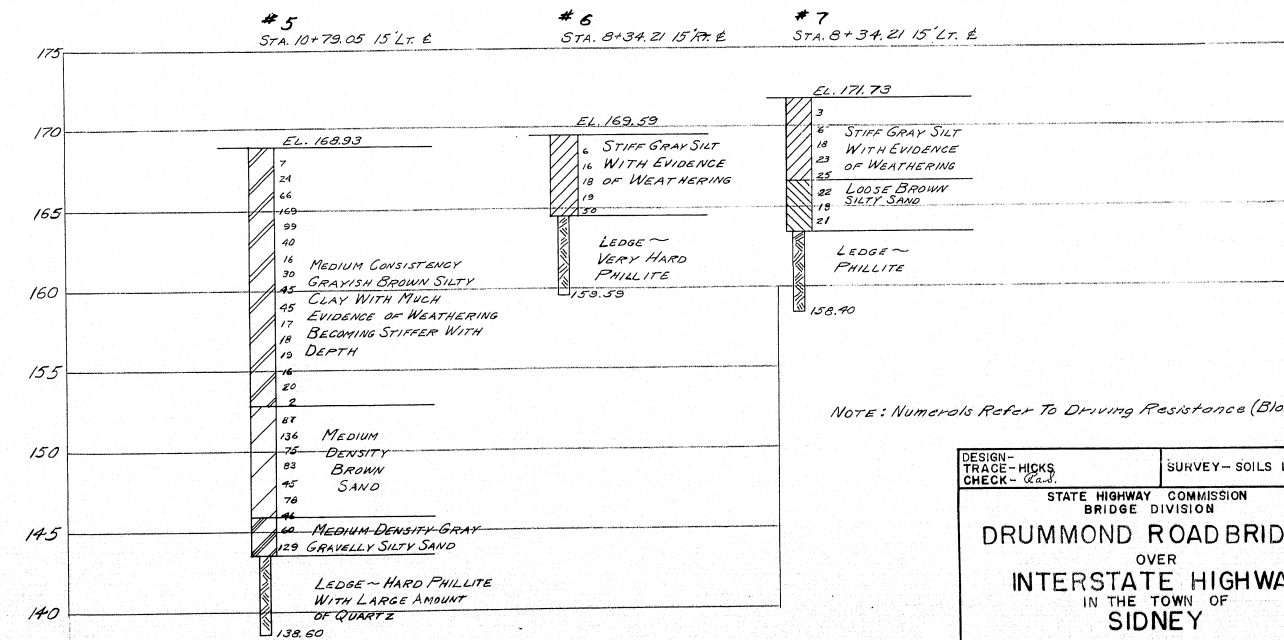 # 5
STA. 10+79.05 15' LT. ℄
# 6
STA. 8+34.21 15' RT. ℄
# 7
STA. 8+34.21 15' LT. ℄
175
170
165
160
155
150
145
140
EL. 168.93
7
24
66
169
99
40
16
30
45
45
17
18
19
16
20
2
MEDIUM CONSISTENCY
GRAYISH BROWN SILTY
CLAY WITH MUCH
EVIDENCE OF WEATHERING
BECOMING STIFFER WITH
DEPTH
87
136
75
83
45
78
46
MEDIUM
DENSITY
BROWN
SAND
60
129
MEDIUM DENSITY GRAY
GRAVELLY SILTY SAND
LEDGE ~ HARD PHILLITE
WITH LARGE AMOUNT
OF QUARTZ
138.60
EL. 169.59
6
16
18
19
50
STIFF GRAY SILT
WITH EVIDENCE
OF WEATHERING
LEDGE ~
VERY HARD
PHILLITE
159.59
EL. 171.73
3
6
18
23
25
STIFF GRAY SILT
WITH EVIDENCE
OF WEATHERING
22
19
21
LOOSE BROWN
SILTY SAND
LEDGE ~
PHILLITE
158.40
NOTE: Numerals Refer To Driving Resistance (Blo
DESIGN-
TRACE-HICKS
CHECK-
SURVEY- SOILS L
STATE HIGHWAY COMMISSION
BRIDGE DIVISION
DRUMMOND ROAD BRID
OVER
INTERSTATE HIGHWA
IN THE TOWN OF
SIDNEY